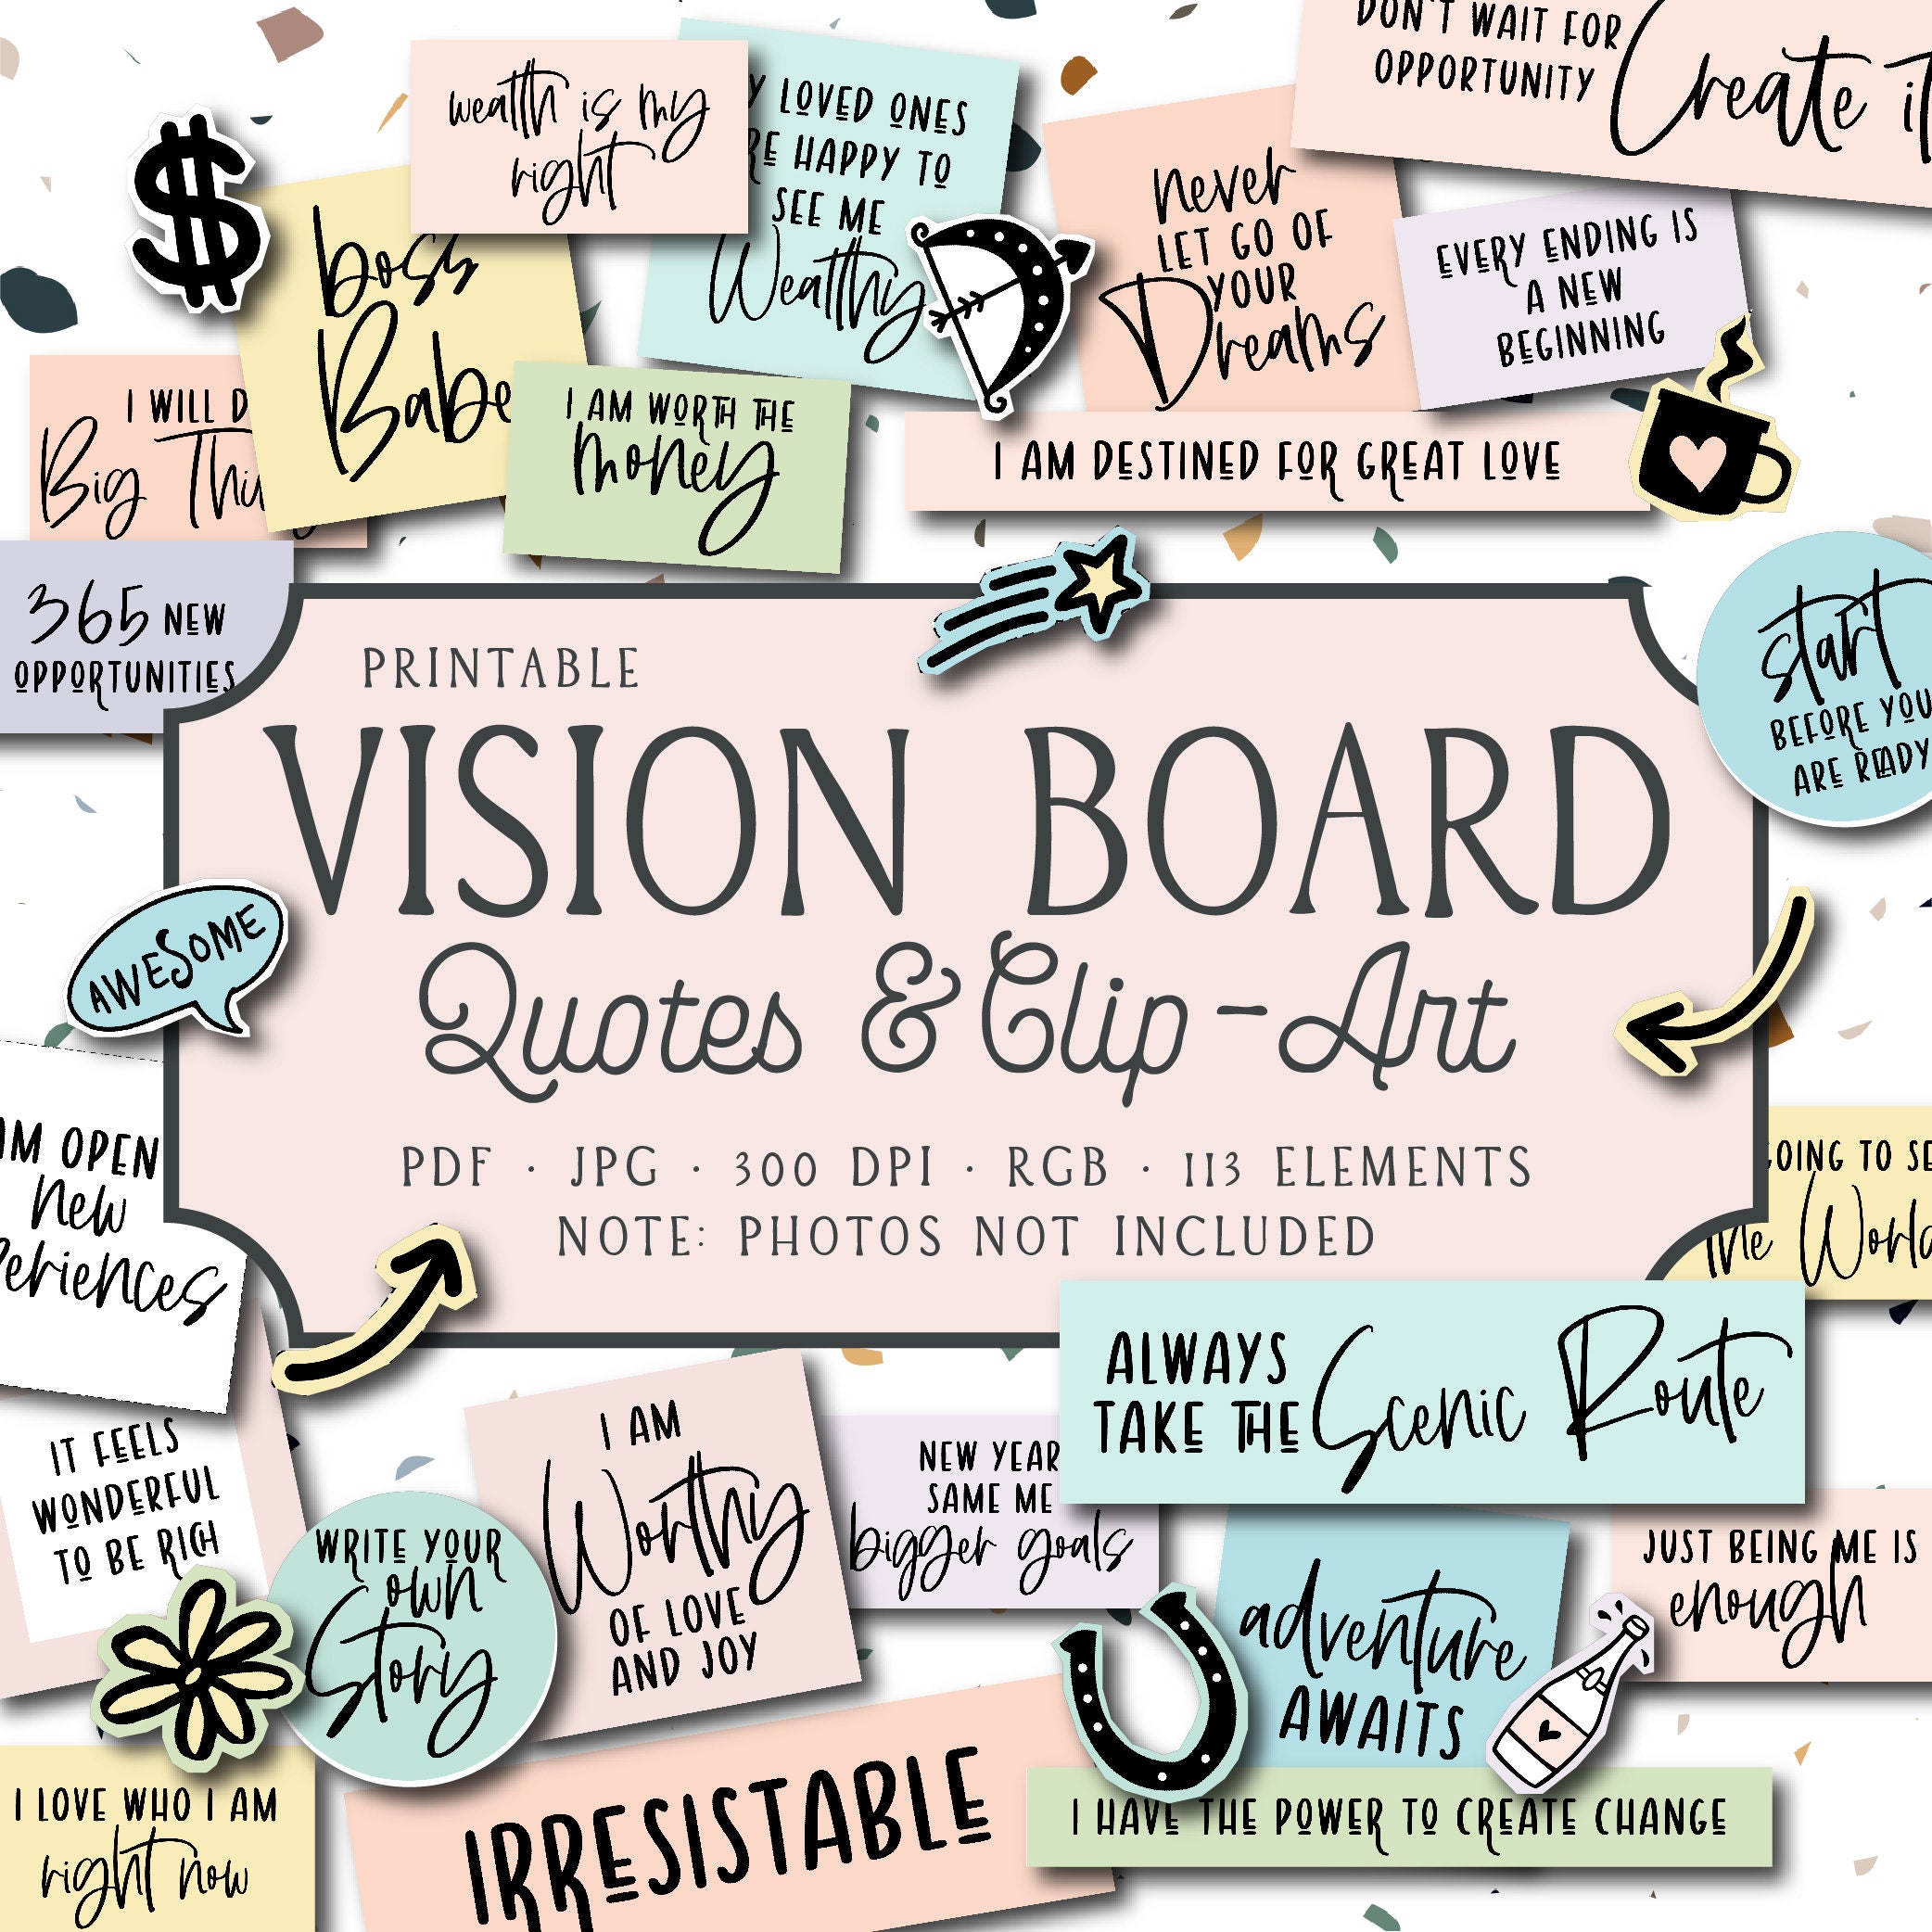 DON'T WAIT FOR
OPPORTUNITY Create it
wealth is my
right
LOVED ONES
HAPPY TO
SEE ME
Wealthy
never
LET GO OF
YOUR
Dreams
EVERY ENDING IS
A NEW
BEGINNING
boss
Babe
I WILL D
Big Thi
I AM WORTH THE
money
I AM DESTINED FOR GREAT LOVE
365 NEW
OPPORTUNITIES
start
BEFORE YOU
ARE READY
PRINTABLE
VISION BOARD
Quotes & Clip-Art
PDF · JPG · 300 DPI · RGB · 113 ELEMENTS
NOTE: PHOTOS NOT INCLUDED
AWESOME
AM OPEN
New
periences
OING TO SE
the World
ALWAYS
TAKE THE Scenic Route
IT FEELS
WONDERFUL
TO BE RICH
WRITE YOUR
own
Story
I AM
Worthy
OF LOVE
AND JOY
NEW YEAR
SAME ME
bigger goals
adventure
AWAITS
JUST BEING ME IS
enough
I LOVE WHO I AM
right now
IRRESISTABLE
I HAVE THE POWER TO CREATE CHANGE